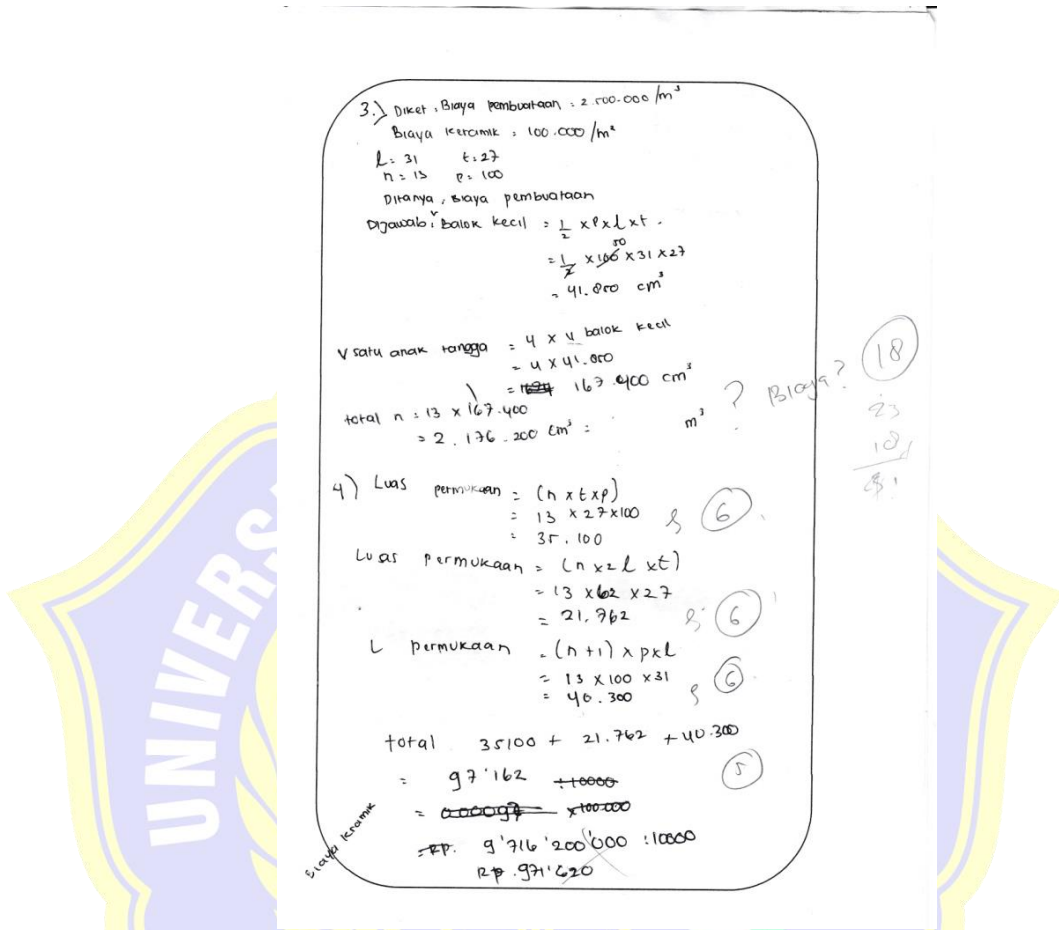 3.) Diket : Biaya pembuataan : 2.500.000 /m³
Biaya keramik : 100.000 /m²
l = 31 t = 27
n = 13 p = 100
Ditanya, Biaya pembuataan
Dijawab : v Balok kecil = 1/2 x p x l x t .
= 1/2 x 100 50 x 31 x 27
= 41.850 cm³
V satu anak tangga = 4 x v balok kecil
= 4 x 41.850
= 167.400 cm³
total n = 13 x 167.400
= 2.176.200 cm³ = m³ ? Biaya? 18
23
18
4) Luas permukaan = (n x t x p)
= 13 x 27 x 100 6
= 35.100
Luas permukaan = (n x 2 l x t)
= 13 x 62 x 27
= 21.762 6
L permukaan = (n + 1) x p x l
= 13 x 100 x 31
= 40.300 6
total 35100 + 21.762 + 40.300
= 97'162 : 10000 5
= 0.00097 x 100.000
Biaya kramik
= RP. 9'716'200'000 : 10000
RP. 971'620
UNIVERS